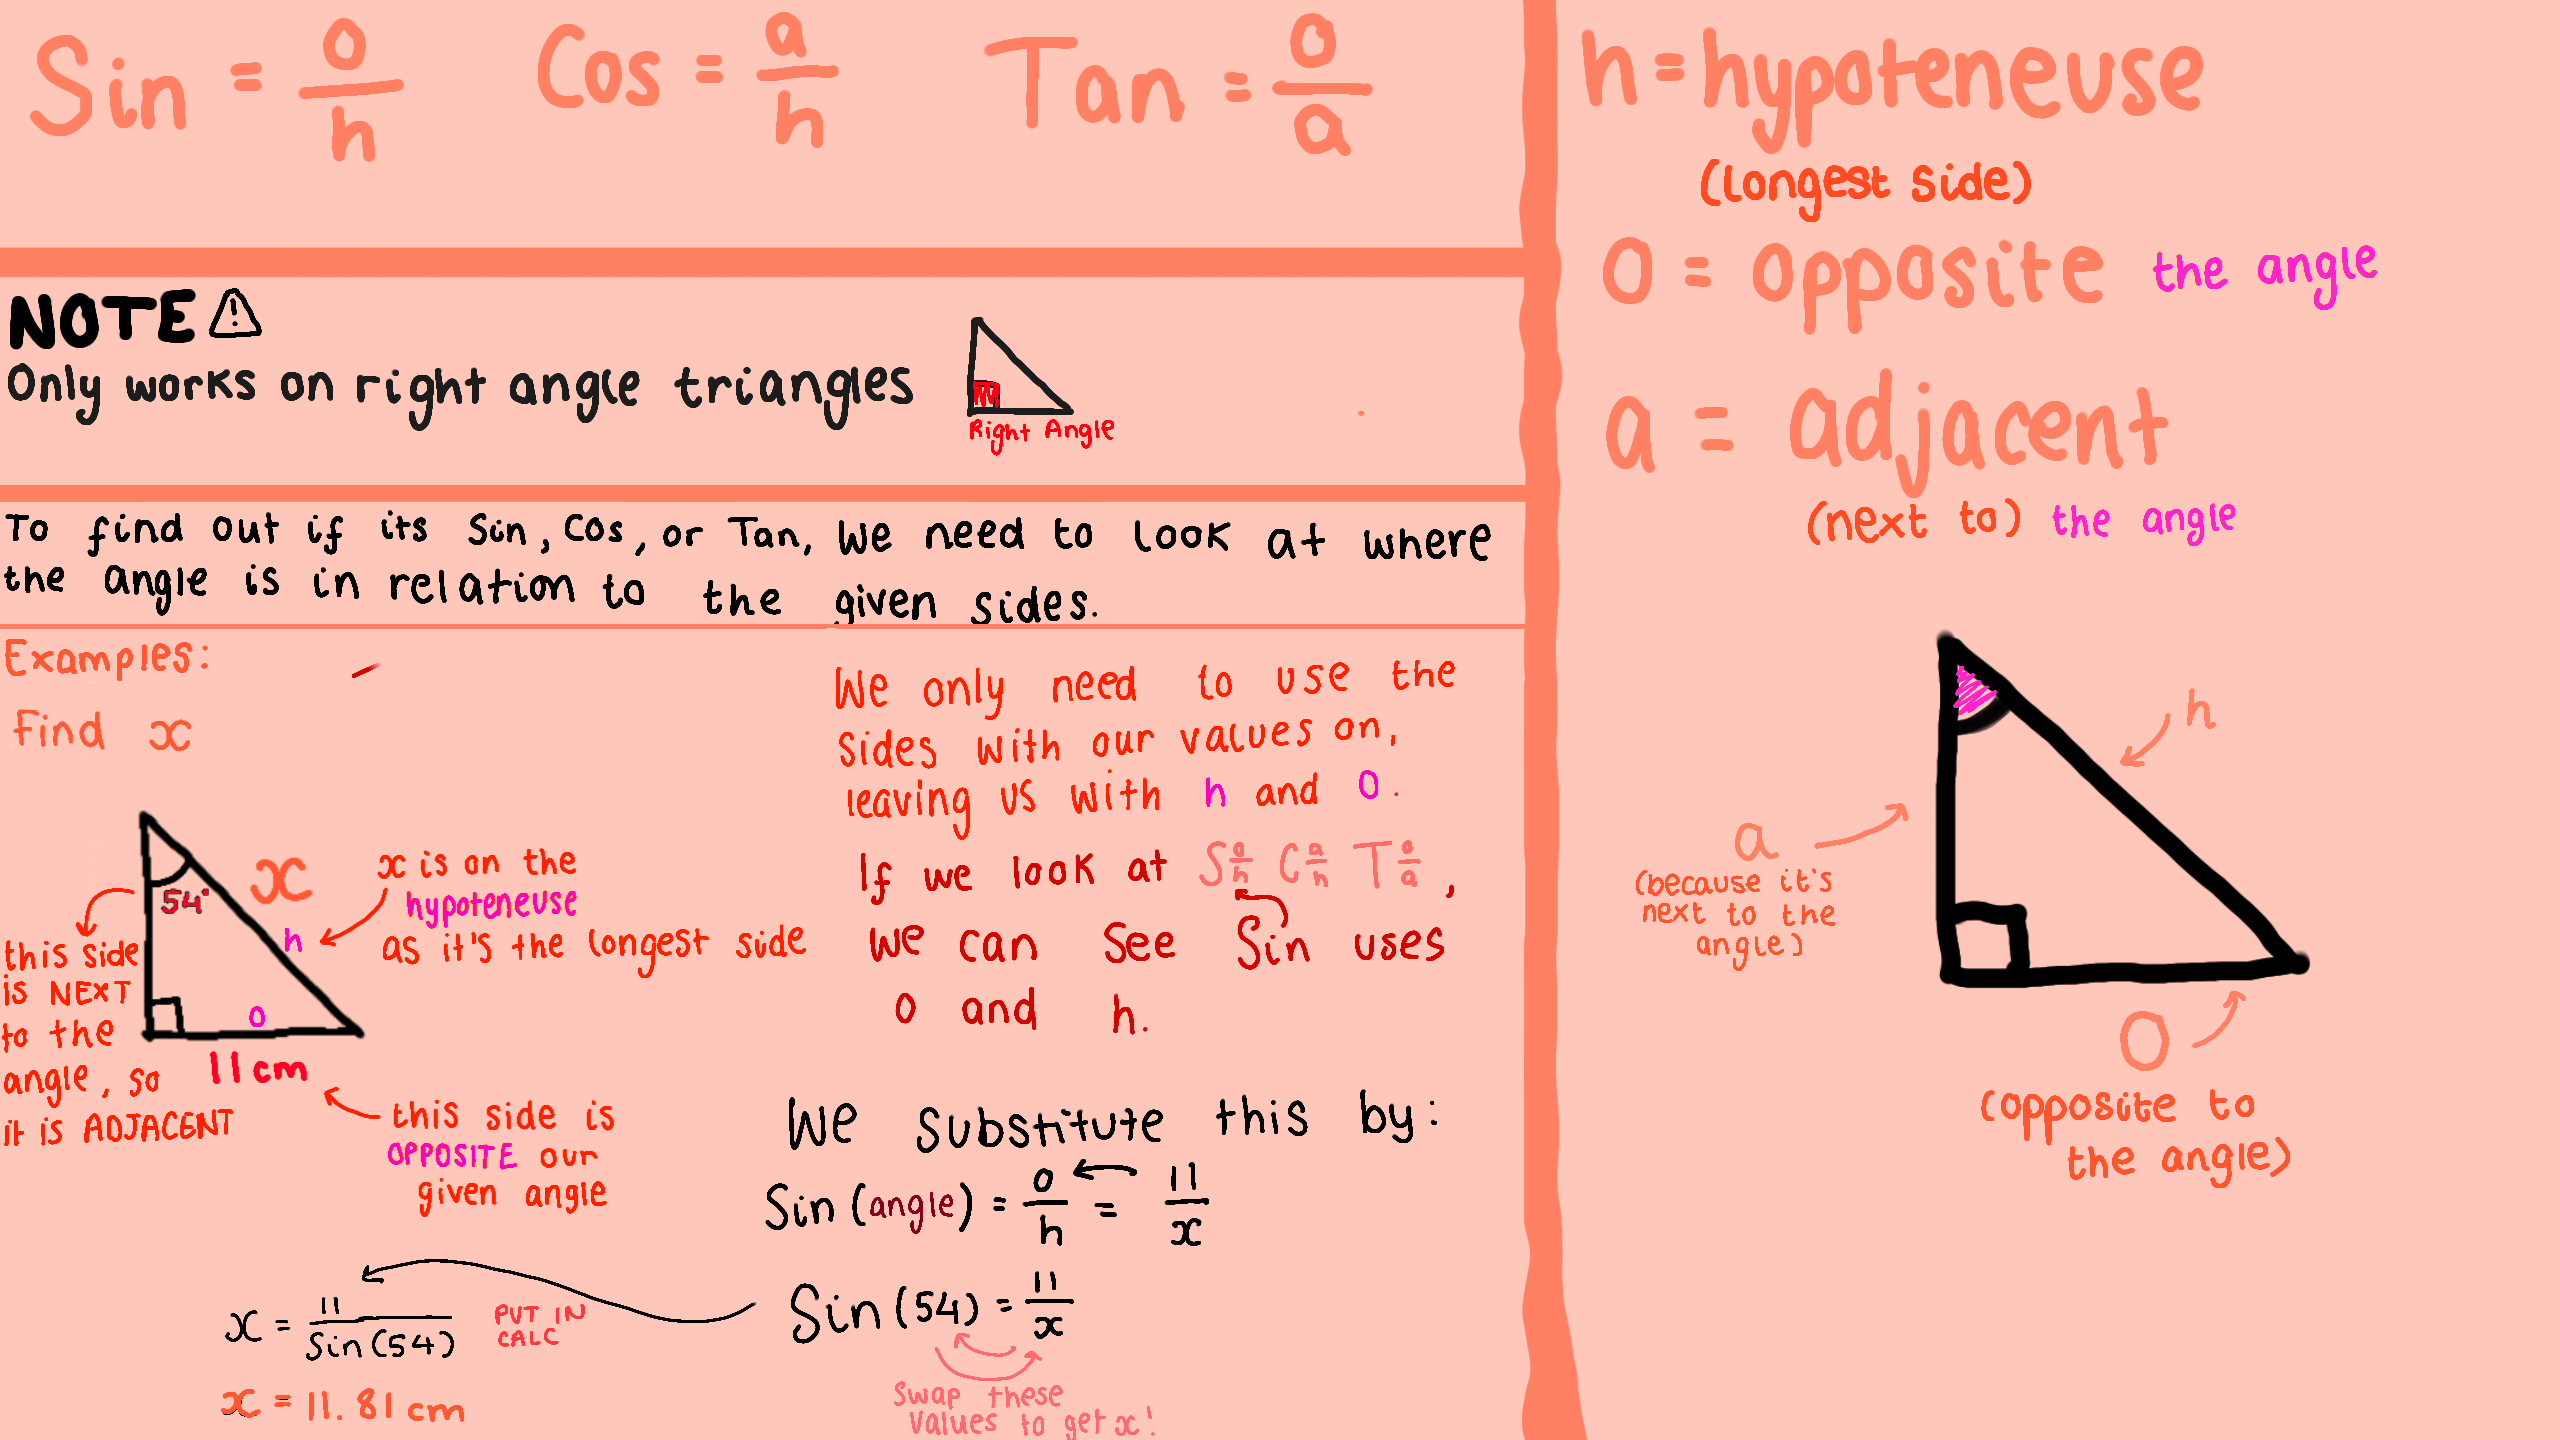 Sin = o/h Cos = a/h Tan = o/a
NOTE
Only works on right angle triangles
Right Angle
To find out if its Sin, Cos, or Tan, We need to look at where
the angle is in relation to the given sides.
Examples:
Find x
54°
x
h
o
11cm
this side
is NEXT
to the
angle, so
it is ADJACENT
x is on the
hypoteneuse
as it's the longest side
this side is
OPPOSITE our
given angle
We only need to use the
sides with our values on,
leaving us with h and o.
If we look at S o/h C a/h T o/a,
we can see Sin uses
o and h.
We substitute this by:
Sin (angle) = o/h = 11/x
Sin (54) = 11/x
Swap these
values to get x!
x = 11/Sin(54)
PUT IN
CALC
x = 11.81 cm
h = hypoteneuse
(longest side)
o = opposite the angle
a = adjacent
(next to) the angle
h
a
(because it's
next to the
angle)
o
(opposite to
the angle)